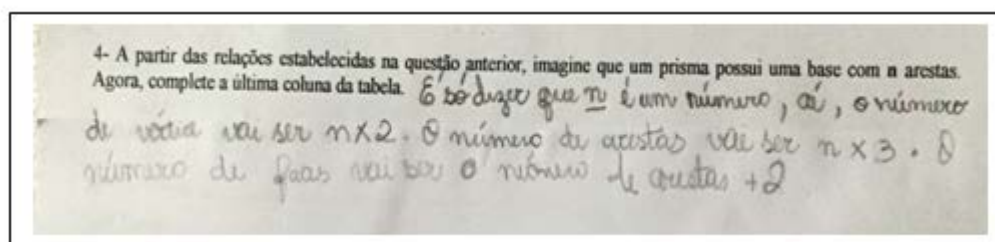 4- A partir das relações estabelecidas na questão anterior, imagine que um prisma possui uma base com n arestas.
Agora, complete a última coluna da tabela. É só dizer que n é um número, aí, o número
de vértia vai ser n×2. O número de arestas vai ser n×3. O
número de faas vai ser o número de arestas +2